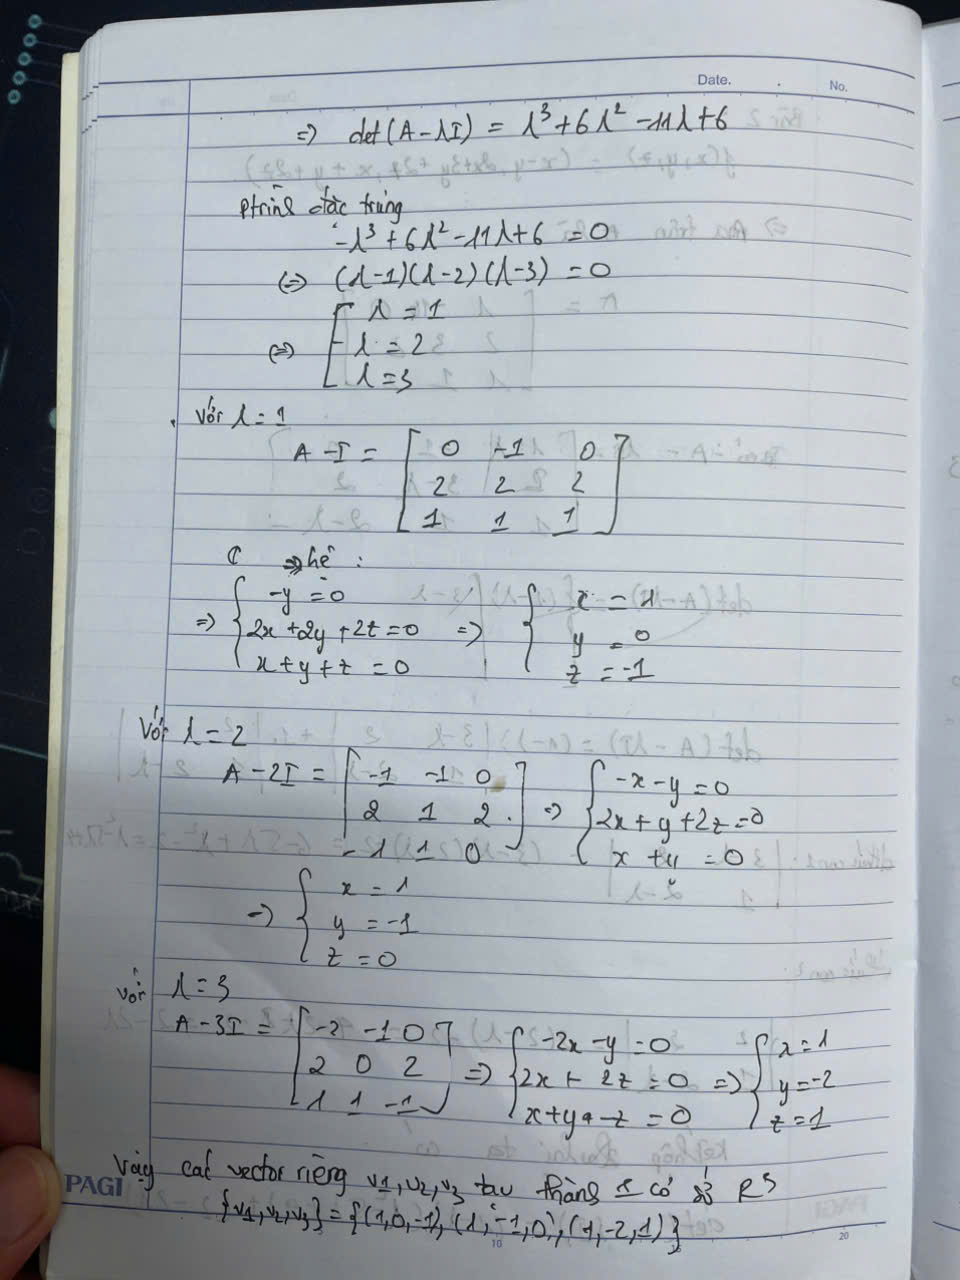 Date.
No.
=> det(A-λI) = λ³+6λ²-11λ+6
ptrình đặc trưng
-λ³+6λ²-11λ+6 = 0
(=) (λ-1)(λ-2)(λ-3) = 0
(=) [ λ = 1
λ = 2
λ = 3
Với λ = 1
A - I = [ 0 -1 0
2 2 2
1 1 1 ]
=> hệ :
=> { -y = 0
2x+2y+2z=0
x+y+z = 0 => { x = 1
y = 0
z = -1
Với λ = 2
A - 2I = [ -1 -1 0
2 1 2
1 1 0 ] => { -x - y = 0
2x+y+2z=0
x+y = 0
=> { x = 1
y = -1
z = 0
với λ = 3
A - 3I = [ -2 -1 0
2 0 2
1 1 -1 ] => { -2x - y = 0
2x + 2z = 0
x+y - z = 0 => { x = 1
y = -2
z = 1
Vậy các vector riêng v1, v2, v3 tạo thành 1 cơ sở R³
{v1, v2, v3} = {(1,0,-1), (1,-1,0), (1,-2,1)}
PAGI
10
20